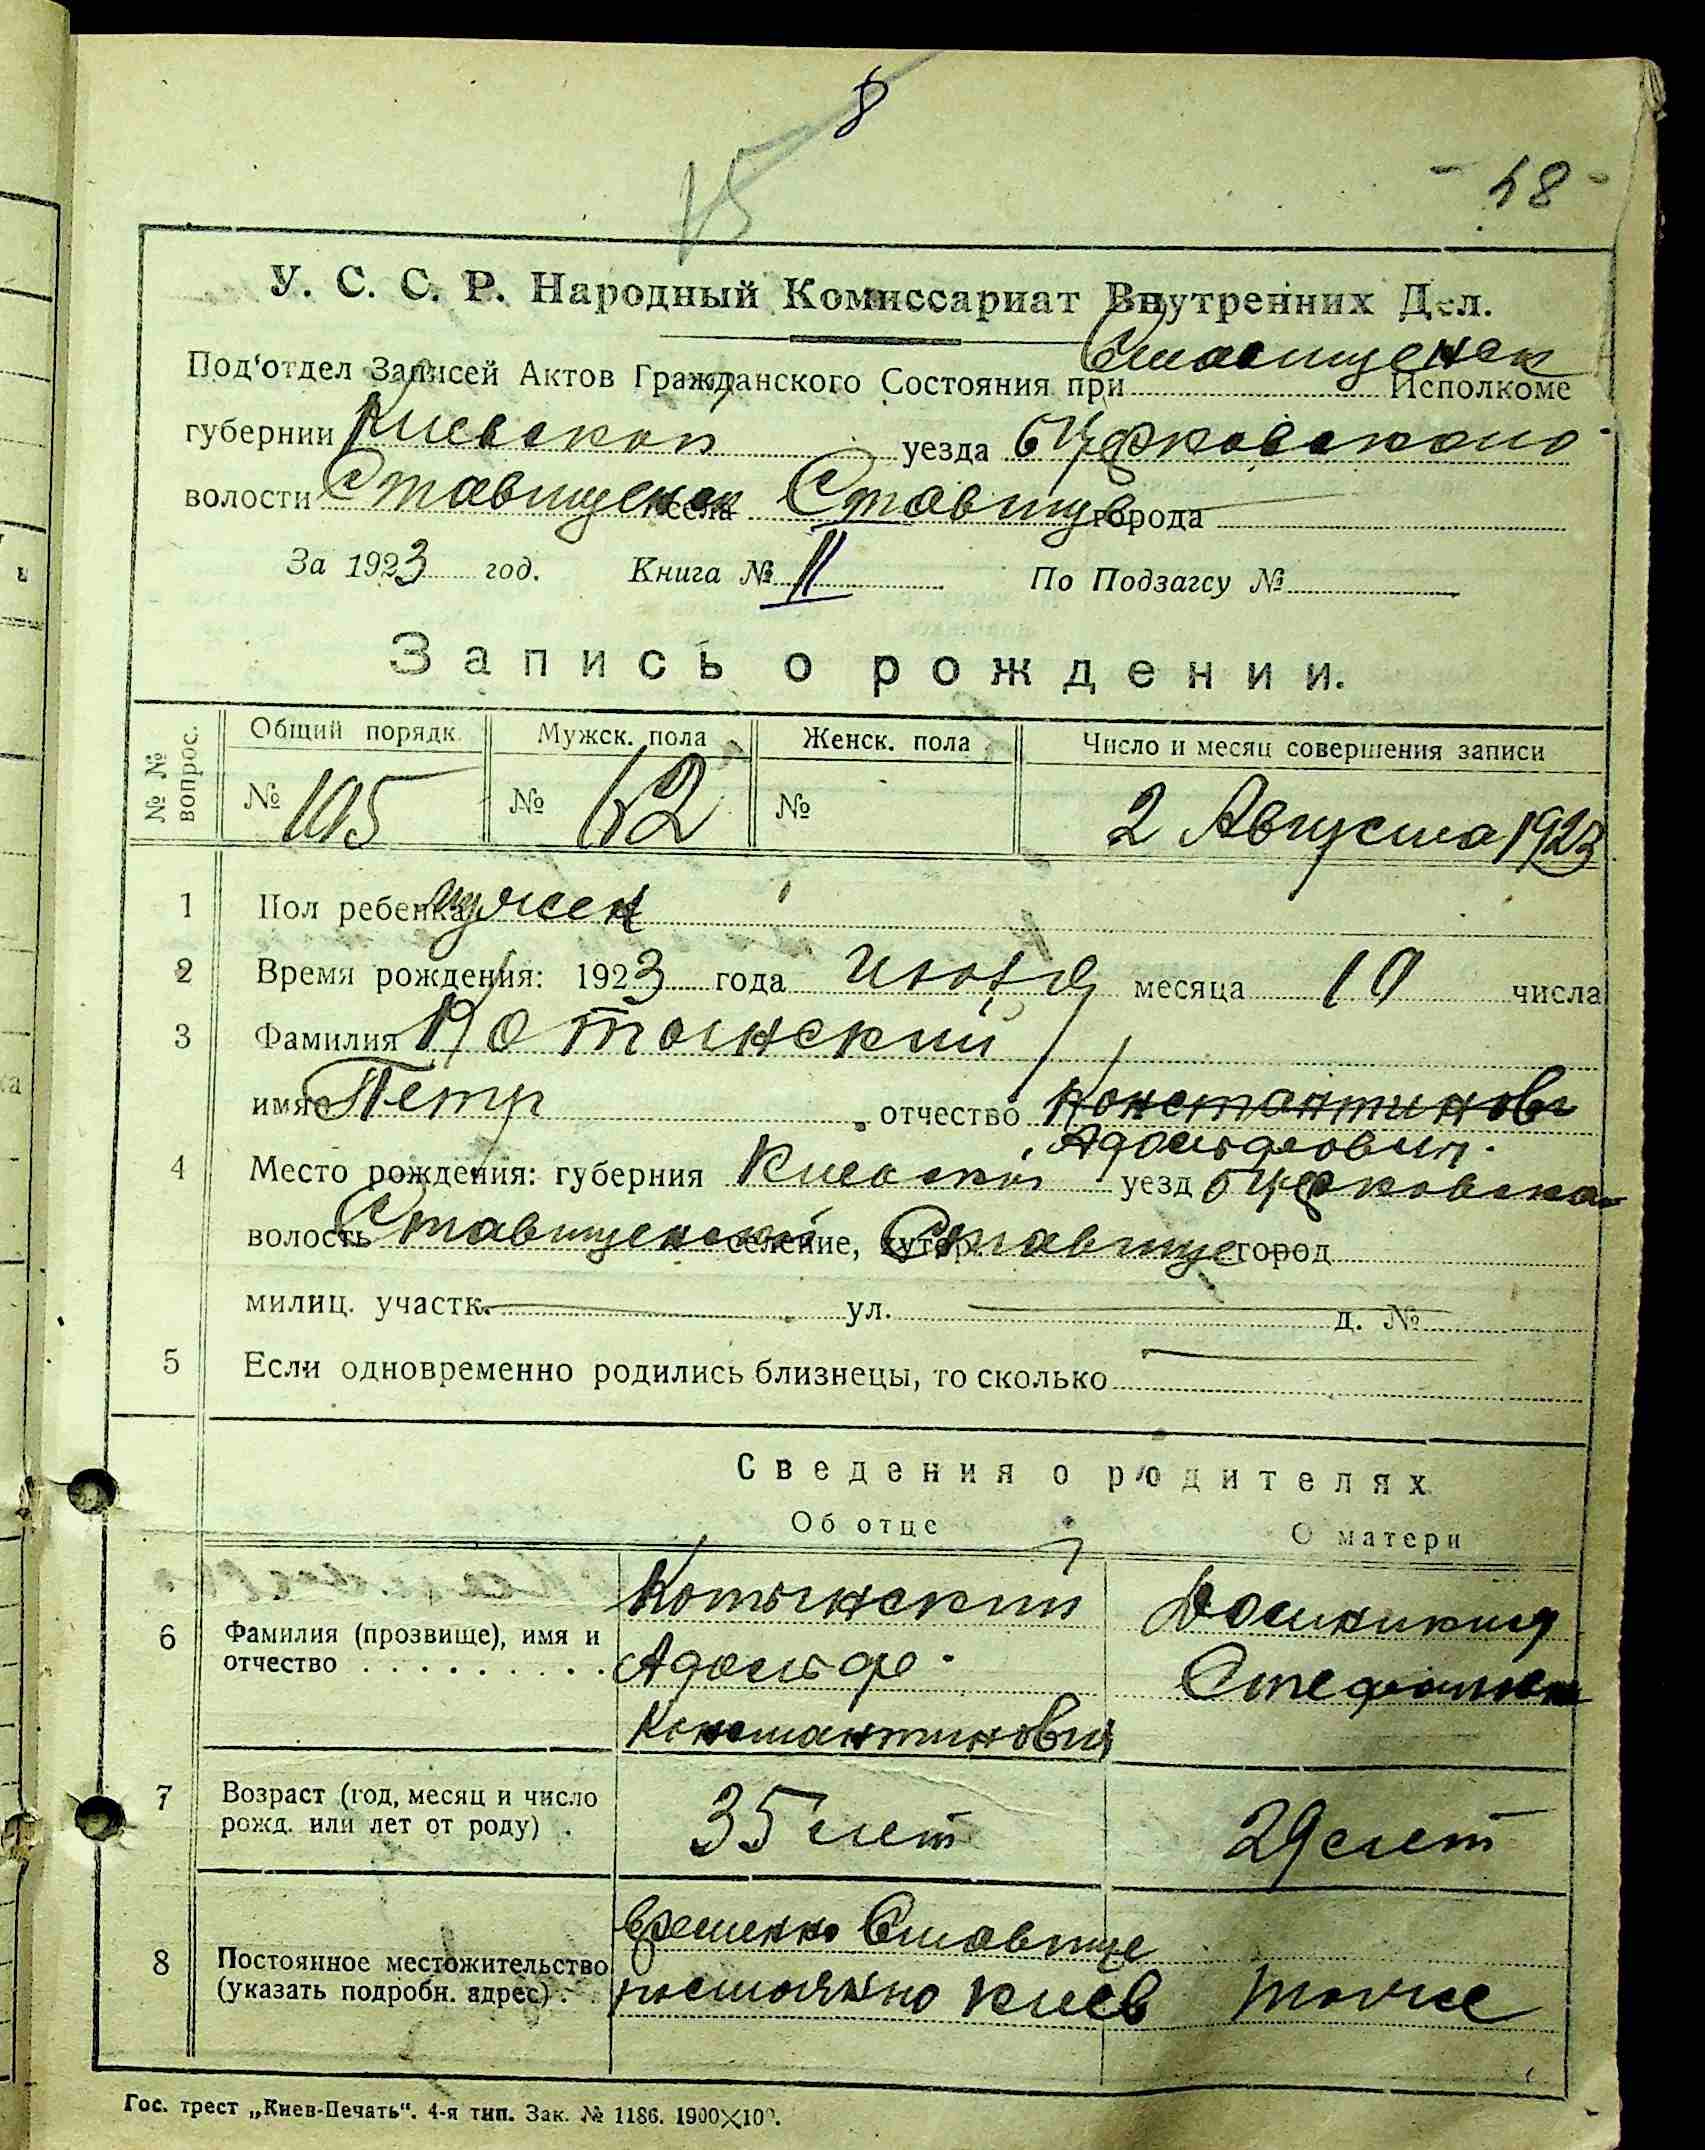 8
15
- 48 -
У. С. С. Р. Народный Комиссариат Внутренних Дел.
Под'отдел Записей Актов Гражданского Состояния при Ставищенск Исполкоме
губернии Киевской уезда бЦерковского
волости Ставищенск села Ставище города
За 1923 год. Книга № II По Подзагсу №
Запись о рождении.
№ № вопрос. Общий порядк. Мужск. пола Женск. пола Число и месяц совершения записи
№ 105 № 62 № 2 Августа 1923
1 Пол ребенка мужск
2 Время рождения: 1923 года июля месяца 10 числа
3 Фамилия Котынский
имя Петр отчество Константинов
Адольфович.
4 Место рождения: губерния Киевской уезд бЦерковско
волость Ставищенской селение, хутор Ставище город
милиц. участк. ул. д. №
5 Если одновременно родились близнецы, то сколько
Сведения о родителях
Об отце О матери
6 Фамилия (прозвище), имя и отчество
Котынский
Адольф
Константинович
Доминикия
7 Возраст (год, месяц и число рожд. или лет от роду)
35 лет
29 лет
8 Постоянное местожительство (указать подробн. адрес)
временно Ставище
постоянно Киев
тоже
Гос. трест „Киев-Печать". 4-я тип. Зак. № 1186. 1900×100.